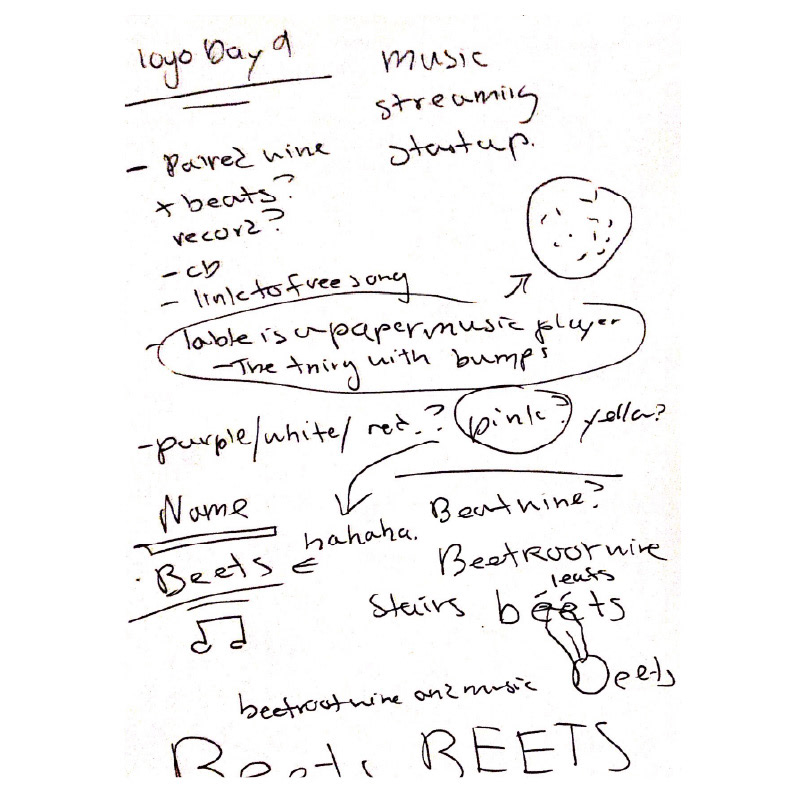 logo Day 9
music
streaming
startup.
- Paired wine
+ beats?
record?
- cD
- link to free song
- lable is a paper music player
- The thing with bumps
- purple/white/ red.? pink? yella?
Name
hahaha.
Beatwine?
· Beets
Beetroot wine
leafs
Stairs bééts
eets
beetroot wine and music
Beets BEETS